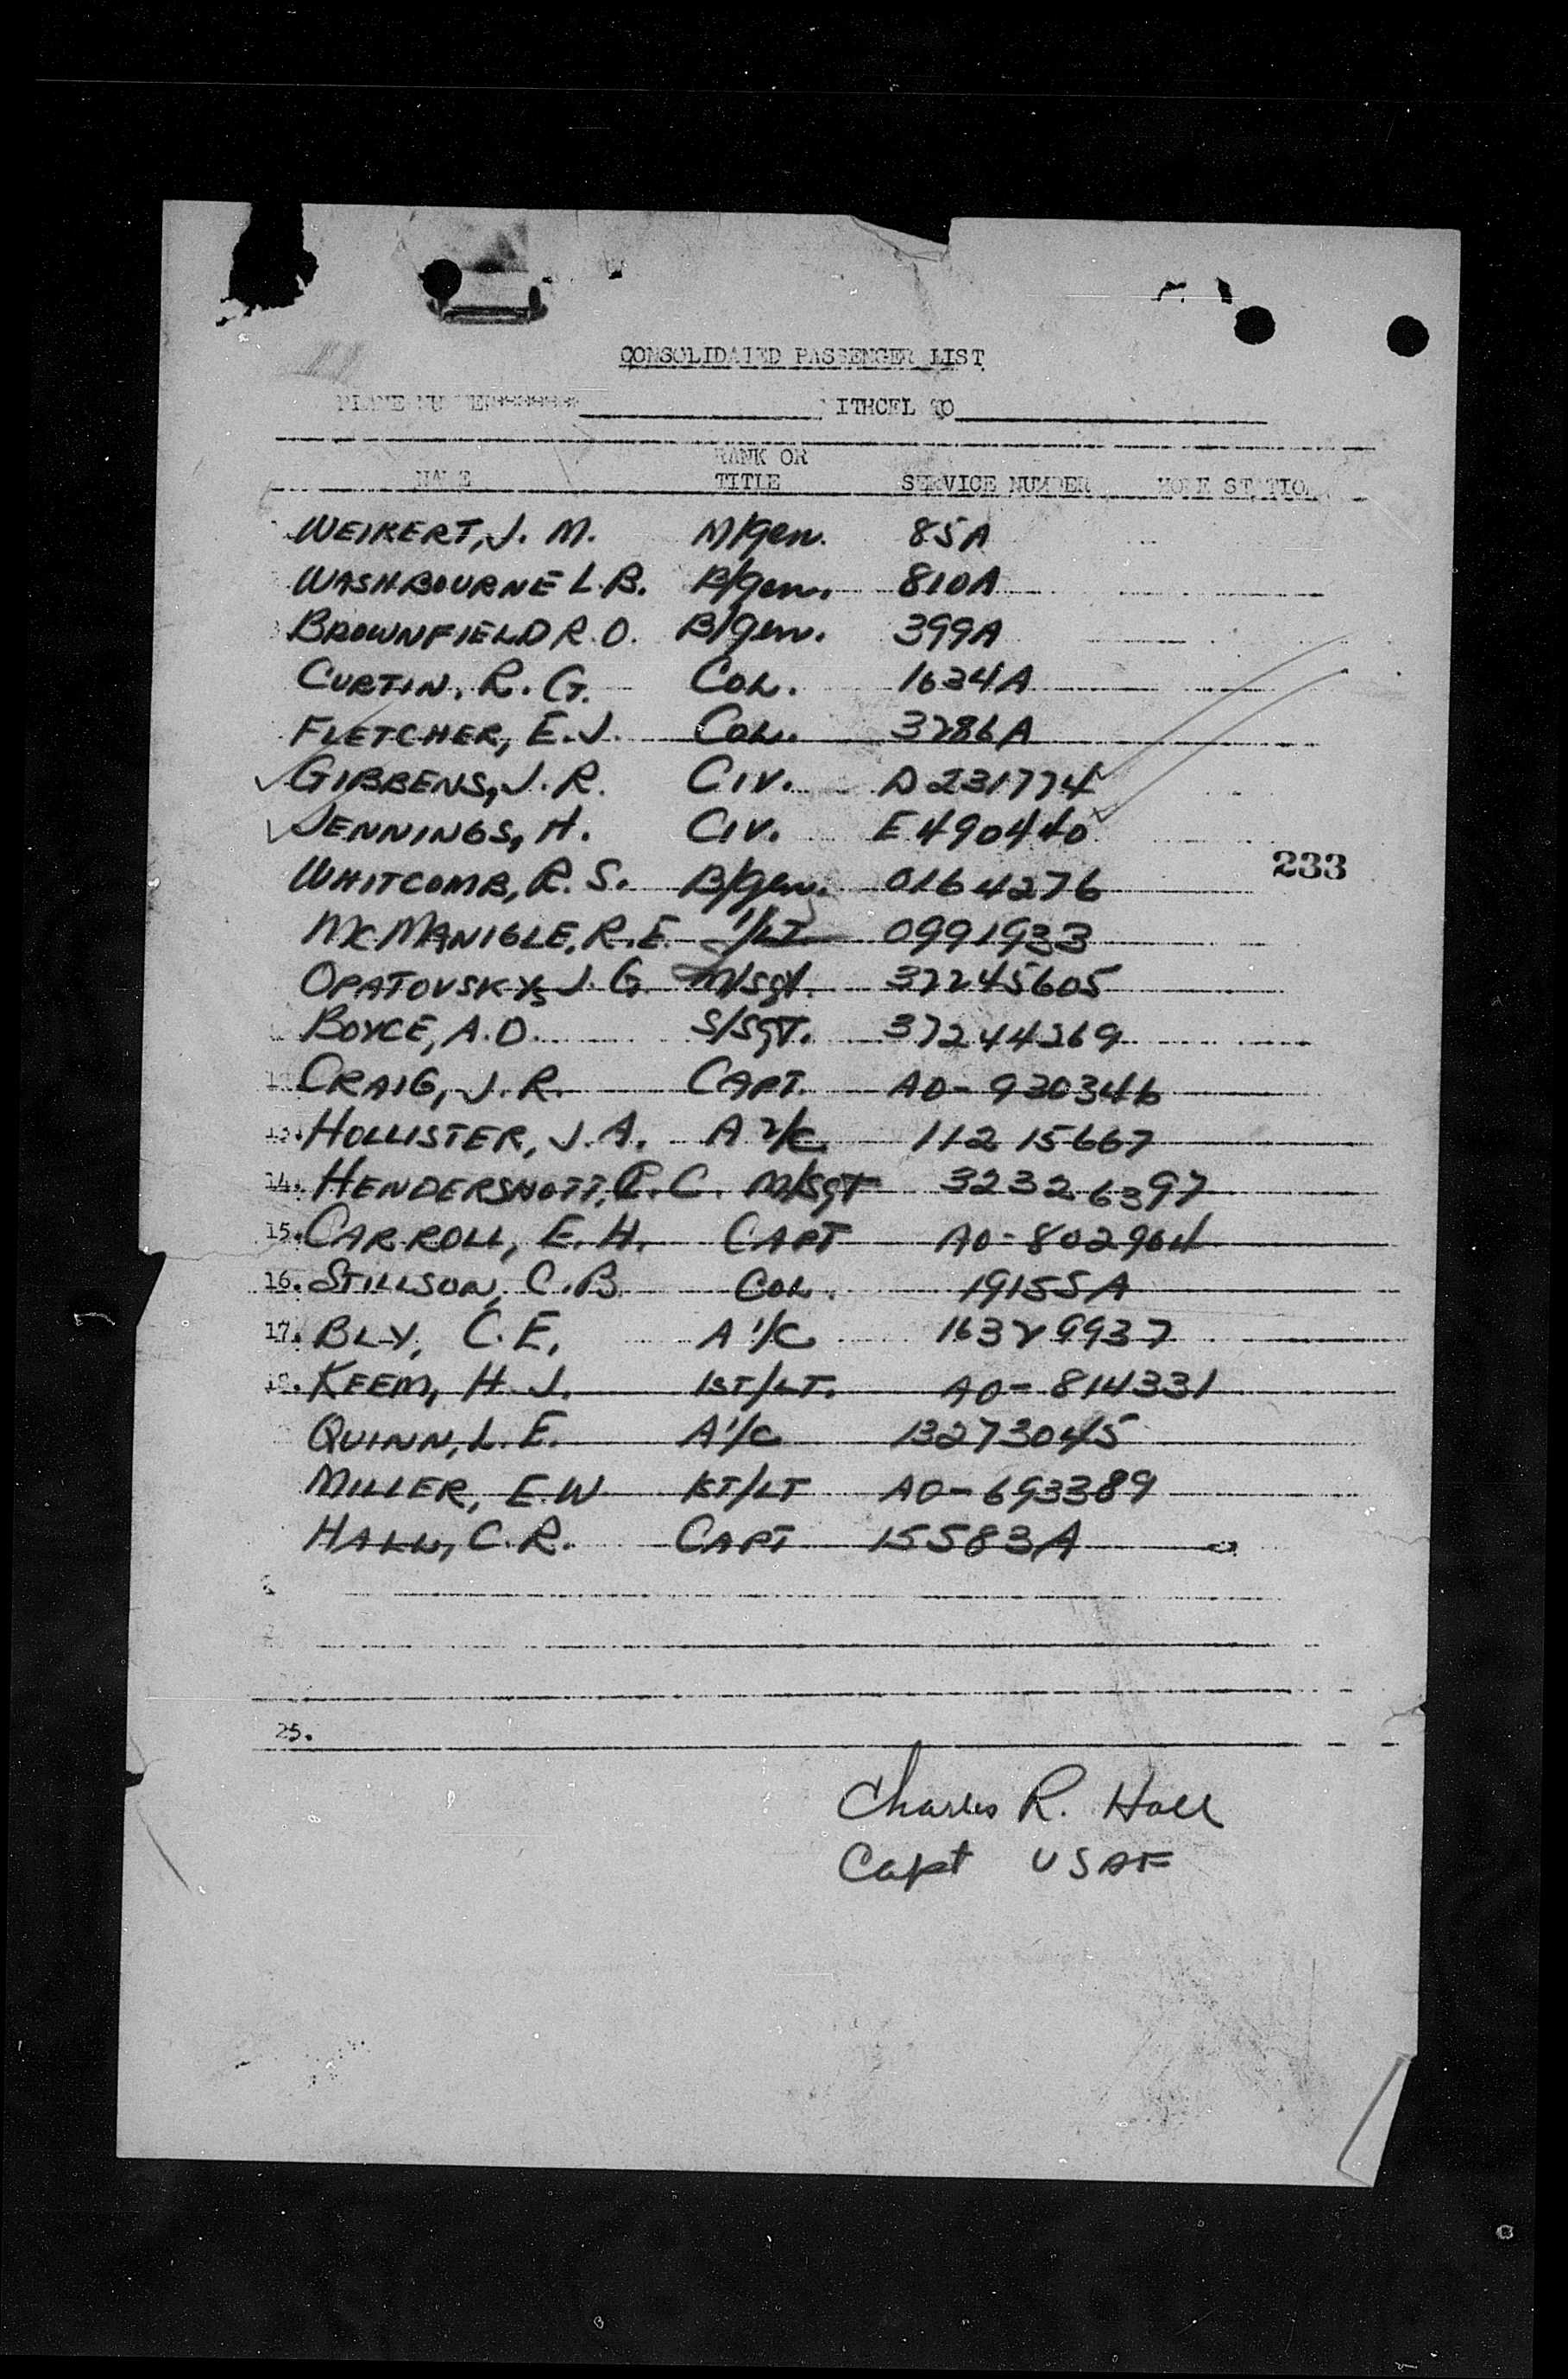 CONSOLIDATED PASSENGER LIST
PLANE NUMBER******
RANK OR
NAME TITLE SERVICE NUMBER HOME STATION
WEIKERT, J. M. M/Gen. 85A
WASHBOURNE L.B. B/Gen. 810A
BROWNFIELD R.O. B/Gen. 399A
CURTIN, R. G. COL. 1634A
FLETCHER, E.J. COL. 3286A
GIBBENS, J. R. CIV. D231774
JENNINGS, H. CIV. E490440
233
WHITCOMB, R. S. B/Gen. 0164276
MCMANIGLE, R.E. 1/LT 0991933
OPATOVSKY, J. G. M/Sgt. 37245605
BOYCE, A.D. S/SGT. 37244269
CRAIG, J.R. CAPT. AO-920346
HOLLISTER, J.A. A 2/C 11215667
14. HENDERSHOTT, R.C. M/SGT 32326397
15. CARROLL, E.H. CAPT AO-802964
16. STILLSON, C.B. COL. 19155A
17. BLY, C.E. A 1/C 16329937
18. KEEM, H.J. 1ST/LT. AO-814331
QUINN, L.E. A 1/C 13273045
MILLER, E.W 1ST/LT AO-693389
HALL, C.R. CAPT 15583A
25.
Charles R. Hall
Capt USAF